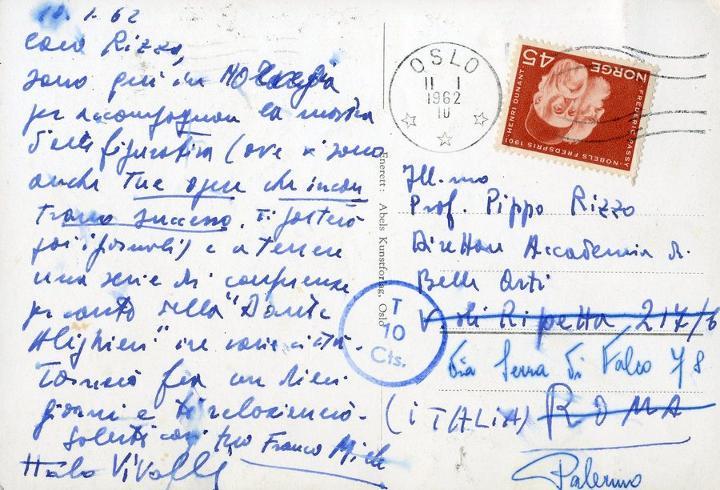 10.1.62
Caro Rizzo,
sono qui in Norvegia
per accompagnare la mostra
d'arte figurativa (ove vi sono
anche tue opere che incon
trano successo. Ti porterò
poi i giornali) e a tenere
una serie di conferenze
per conto della "Dante
Alighieri" in varie città.
Tornerò fra un dieci
giorni e ti relazionerò.
Saluti cari tuo Franco Miele
Italo Vivall
Enerett: Abels Kunstforlag, Oslo
OSLO
11 1
1962
10
NORGE
45
FREDERIC PASSY
HENRI DUNANT
NOBELS FREDSPRIS 1901
T
10
Cts.
Ill.mo
Prof. Pippo Rizzo
Direttore Accademia di
Belle Arti
V. di Ripetta 217/b
Via Serra di Falco 78
(ITALIA) ROMA
Palermo